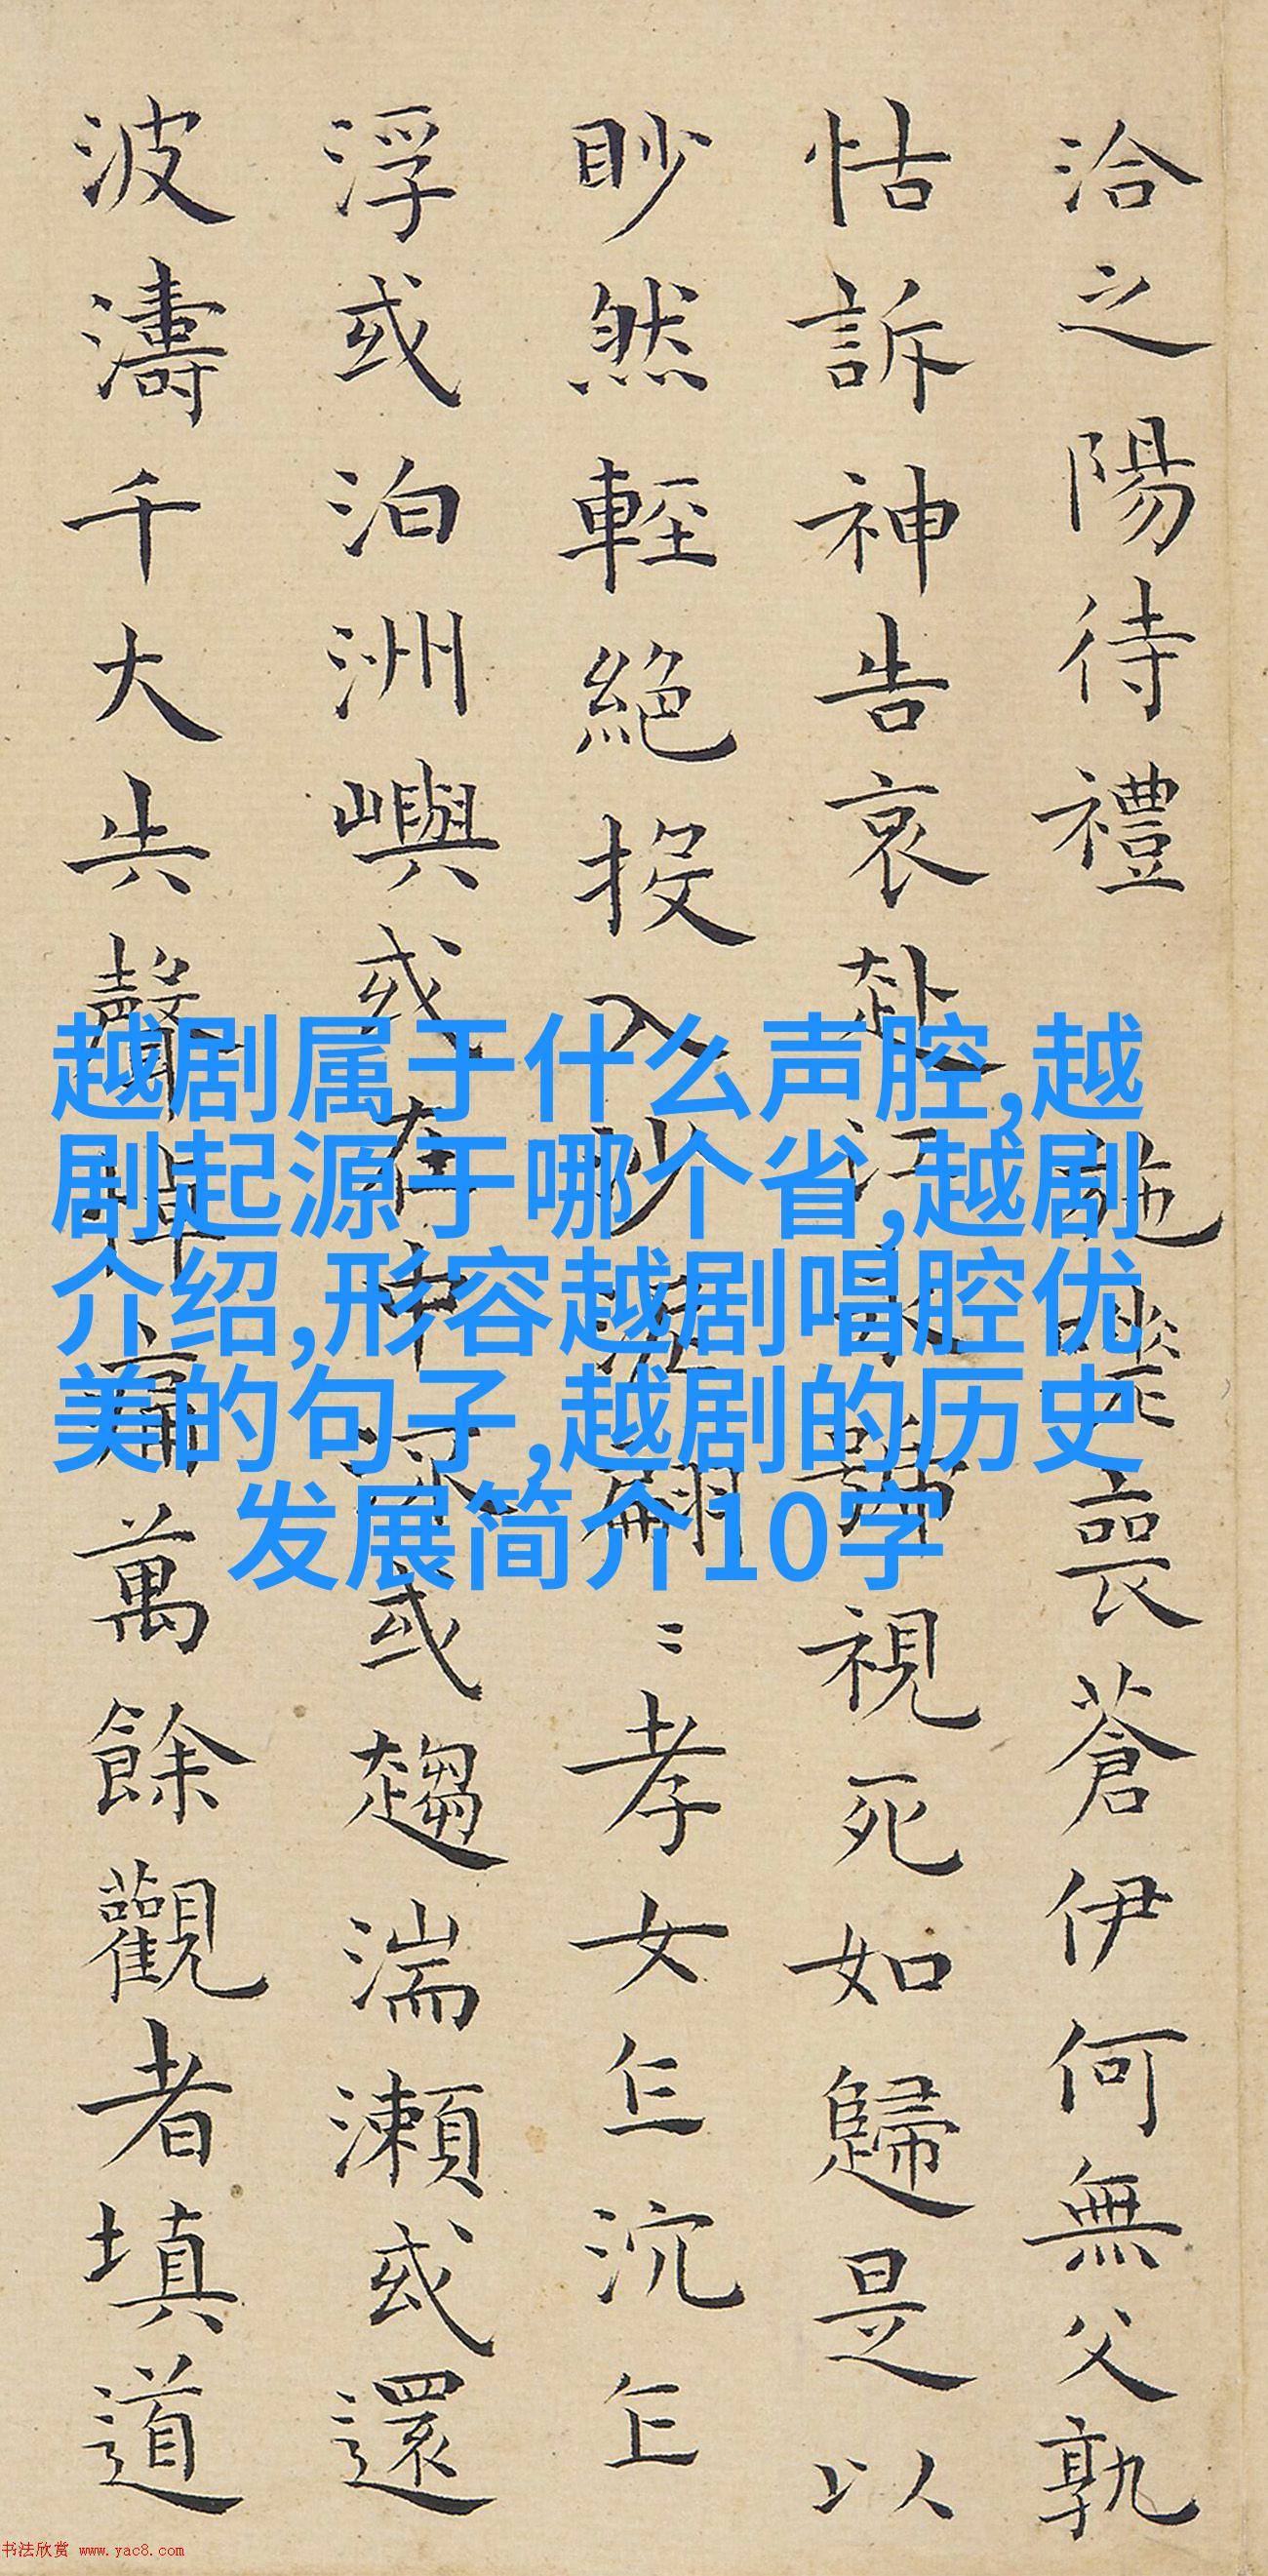 洽之陽待禮施嗟喪蒼伊何無父孰
怙訴神告哀赴江永號視死如歸是以
眇然輕絕投入沙泥翩〻孝女乍沉乍
浮或泊洲嶼或在中流或趨湍瀨或還
波濤千大失聲悼痛萬餘觀者填道
越剧属于什么声腔,越
剧起源于哪个省,越剧
介绍,形容越剧唱腔优
美的句子,越剧的历史
发展简介10字
书法欣赏 www.yac8.com